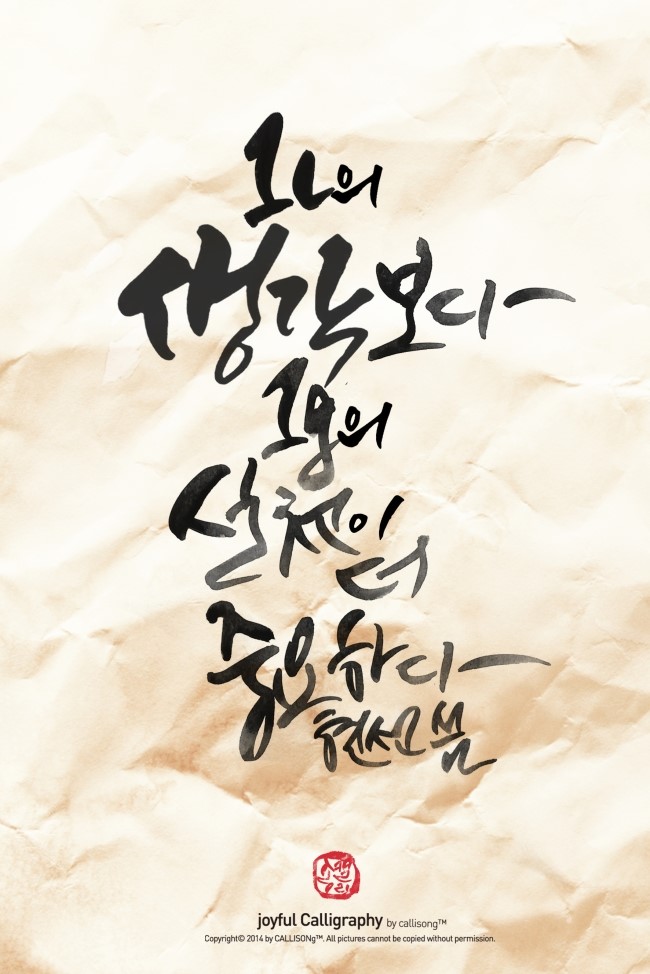 1L의
생각보다
1g의
실천이 더
중요하다
현선 씀
joyful Calligraphy by callisong™
Copyright© 2014 by CALLISONg™. All pictures cannot be copied without permission.